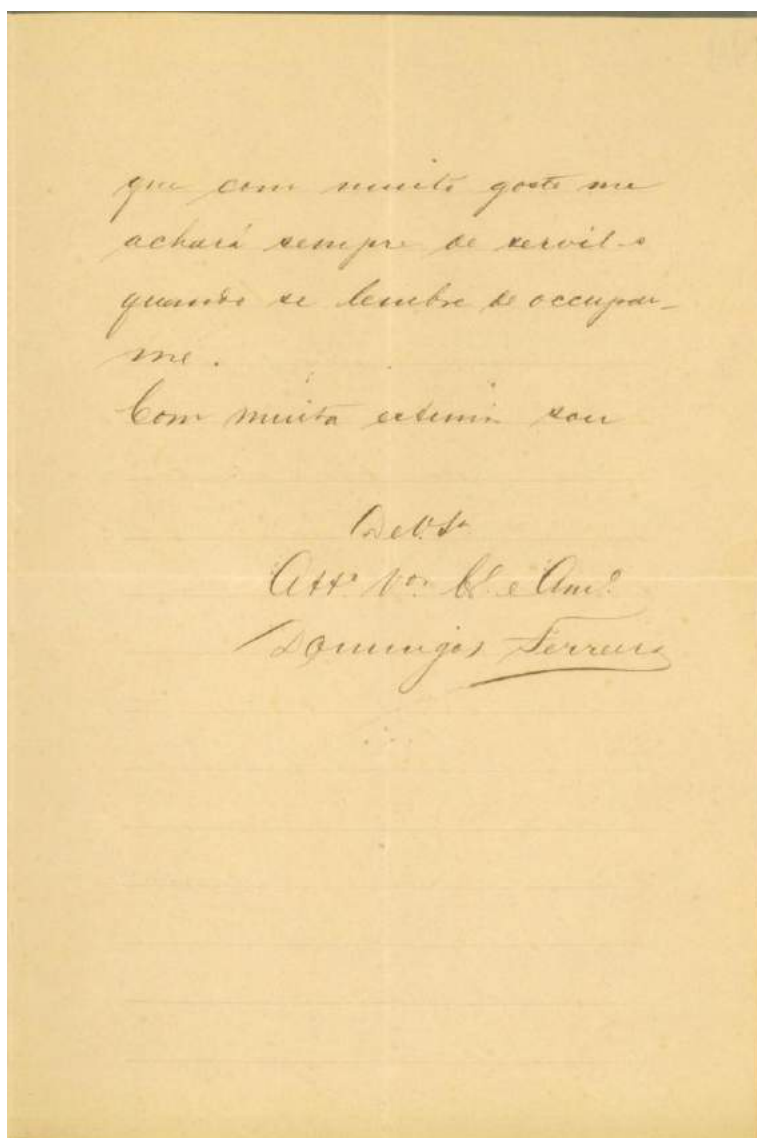 que com muito gosto me
achará sempre de servil-o
quando se lembre de occupar-
me.
Com muita estima sou
De V. Sa
Atto Vor Co e Amo
Domingos Ferreira